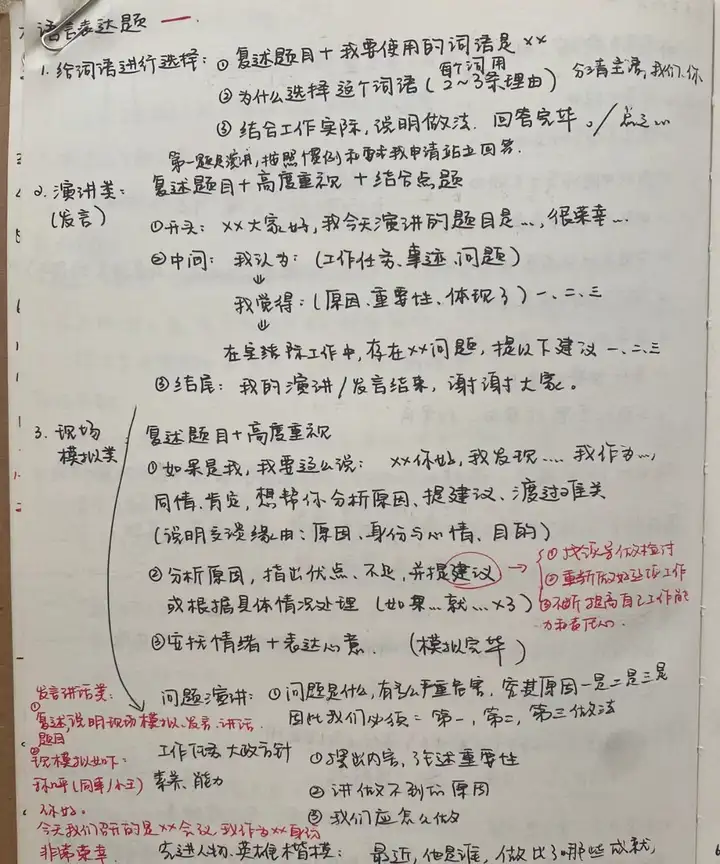 语言表达题 一.
1. 给词语进行选择: ① 复述题目 + 我要使用的词语是 xx
每个词用
② 为什么选择这个词语 ( 2~3条理由 ) 分清主谓, 我们、你
③ 结合工作实际, 说明做法. 回答完毕。/ 总之…
第一题是演讲, 按照惯例和要求我申请站立回答.
2. 演讲类: 复述题目 + 高度重视 + 结合点题
(发言) ①开头: xx大家好, 我今天演讲的题目是…, 很荣幸…
②中间: 我认为: (工作任务、事迹、问题)
↓
我觉得: (原因、重要性、体现了) 一、二、三
↓
在实际工作中, 存在xx问题, 提以下建议 一、二、三
③ 结尾: 我的演讲/发言结束, 谢谢大家。
3. 现场模拟类: 复述题目 + 高度重视
①如果是我, 我要这么说: xx你好, 我发现…. 我作为…,
同情、肯定, 想帮你分析原因、提建议、渡过难关
(说明交谈缘由: 原因、身份与心情、目的)
② 分析原因, 指出优点、不足, 并提建议 → ① 找领导做检讨
② 重新做好这项工作
或根据具体情况处理 (如果…就…x3) ③不断提高自己工作能力和责任心.
③安抚情绪 + 表达心意. (模拟完毕)
发言讲话类: 问题演讲: ①问题是什么, 有多么严重危害. 究其原因一是二是三是
① 复述, 说明现场模拟、发言、讲话题目 因此我们必须: 第一, 第二, 第三做法
② 现模拟如下: 工作任务 大政方针 ①摆出内容, 强调重要性
称呼 (同事/小王) 素养、能力 ② 讲做不到的原因
你好。 ③ 我们应怎么做
今天我们召开的是xx会议, 我作为xx身份
非常荣幸. 先进人物、英雄楷模: 最近, 他是谁, 做出了哪些成就,